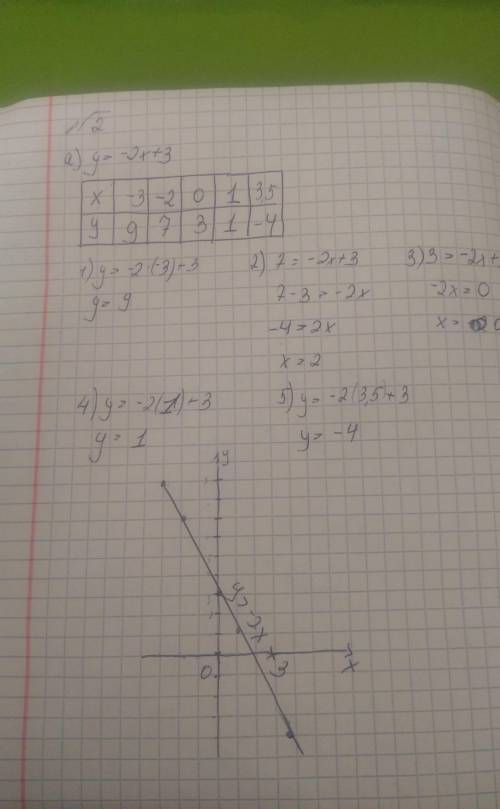 №2
а) y = -2x+3
x -3 -2 0 1 3,5
y 9 7 3 1 -4
1) y = -2·(-3)+3
y = 9
2) 7 = -2x+3
7-3 = -2x
-4 = 2x
x = 2
3) 3 = -2x+
-2x = 0
x = 0
4) y = -2(1)+3
y = 1
5) y = -2(3,5)+3
y = -4
y
y = -2x+3
0
x